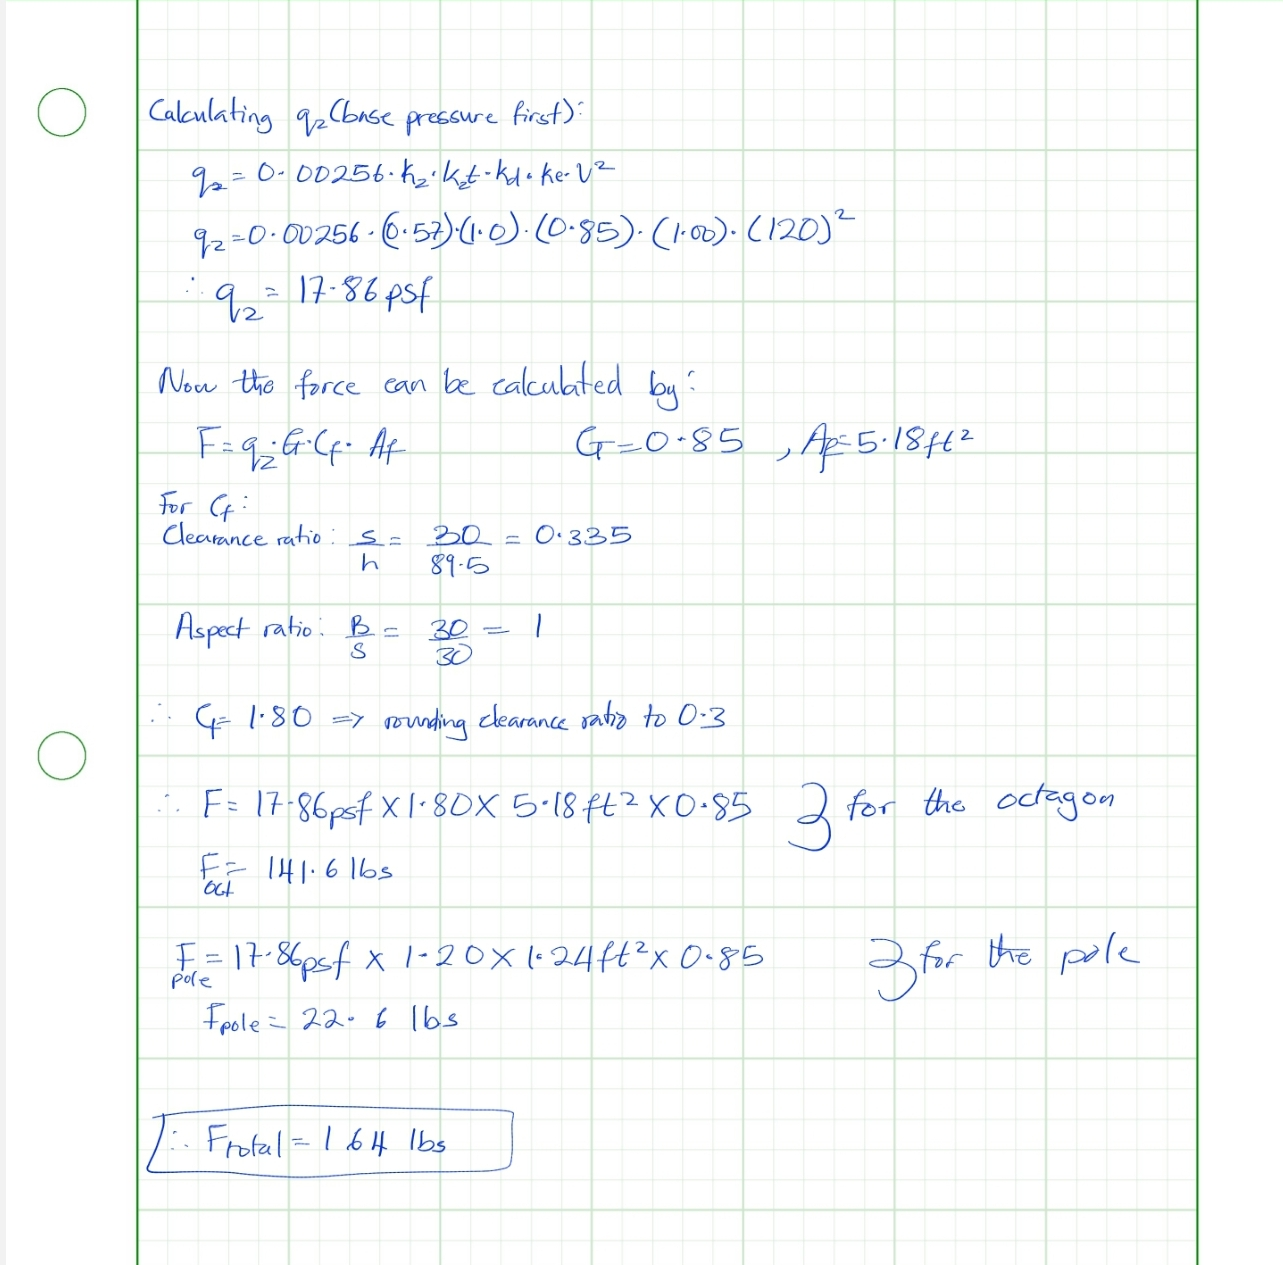 Calculating qz (base pressure first):
qz = 0.00256·kz·kzt·kd·ke·V²
qz = 0.00256·(0.57)·(1.0)·(0.85)·(1.00)·(120)²
∴ qz = 17.86 psf
Now the force can be calculated by:
F = qz·G·Cf·Af G = 0.85 , Af = 5.18 ft²
For Cf:
Clearance ratio: s/h = 30/89.5 = 0.335
Aspect ratio: B/s = 30/30 = 1
∴ Cf = 1.80 => rounding clearance ratio to 0.3
∴ F = 17.86 psf × 1.80 × 5.18 ft² × 0.85 } for the octagon
Foct = 141.6 lbs
Fpole = 17.86 psf × 1.20 × 1.24 ft² × 0.85 } for the pole
Fpole = 22.6 lbs
∴ Ftotal = 164 lbs